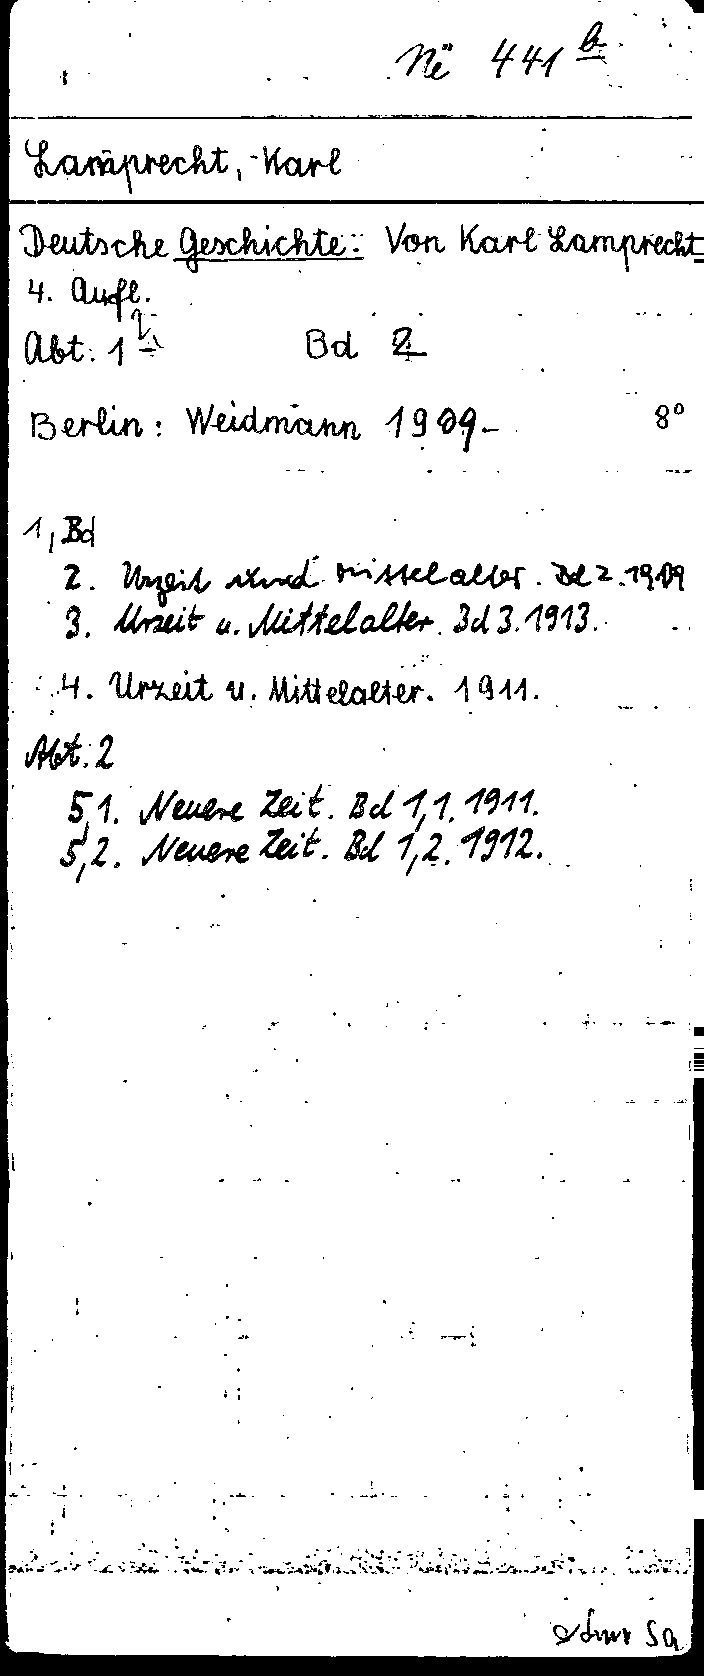 Nc 441 b
Lamprecht, Karl
Deutsche Geschichte: Von Karl Lamprecht
4. Aufl.
Abt. 1 Bd 2
Berlin: Weidmann 1909- 8°
1, Bd
2. Urzeit und Mittelalter. Bd 2. 1909
3. Urzeit u. Mittelalter. Bd 3. 1913.
4. Urzeit u. Mittelalter. 1911.
Abt. 2
5,1. Neuere Zeit. Bd 1,1. 1911.
5,2. Neuere Zeit. Bd 1,2. 1912.
Sa